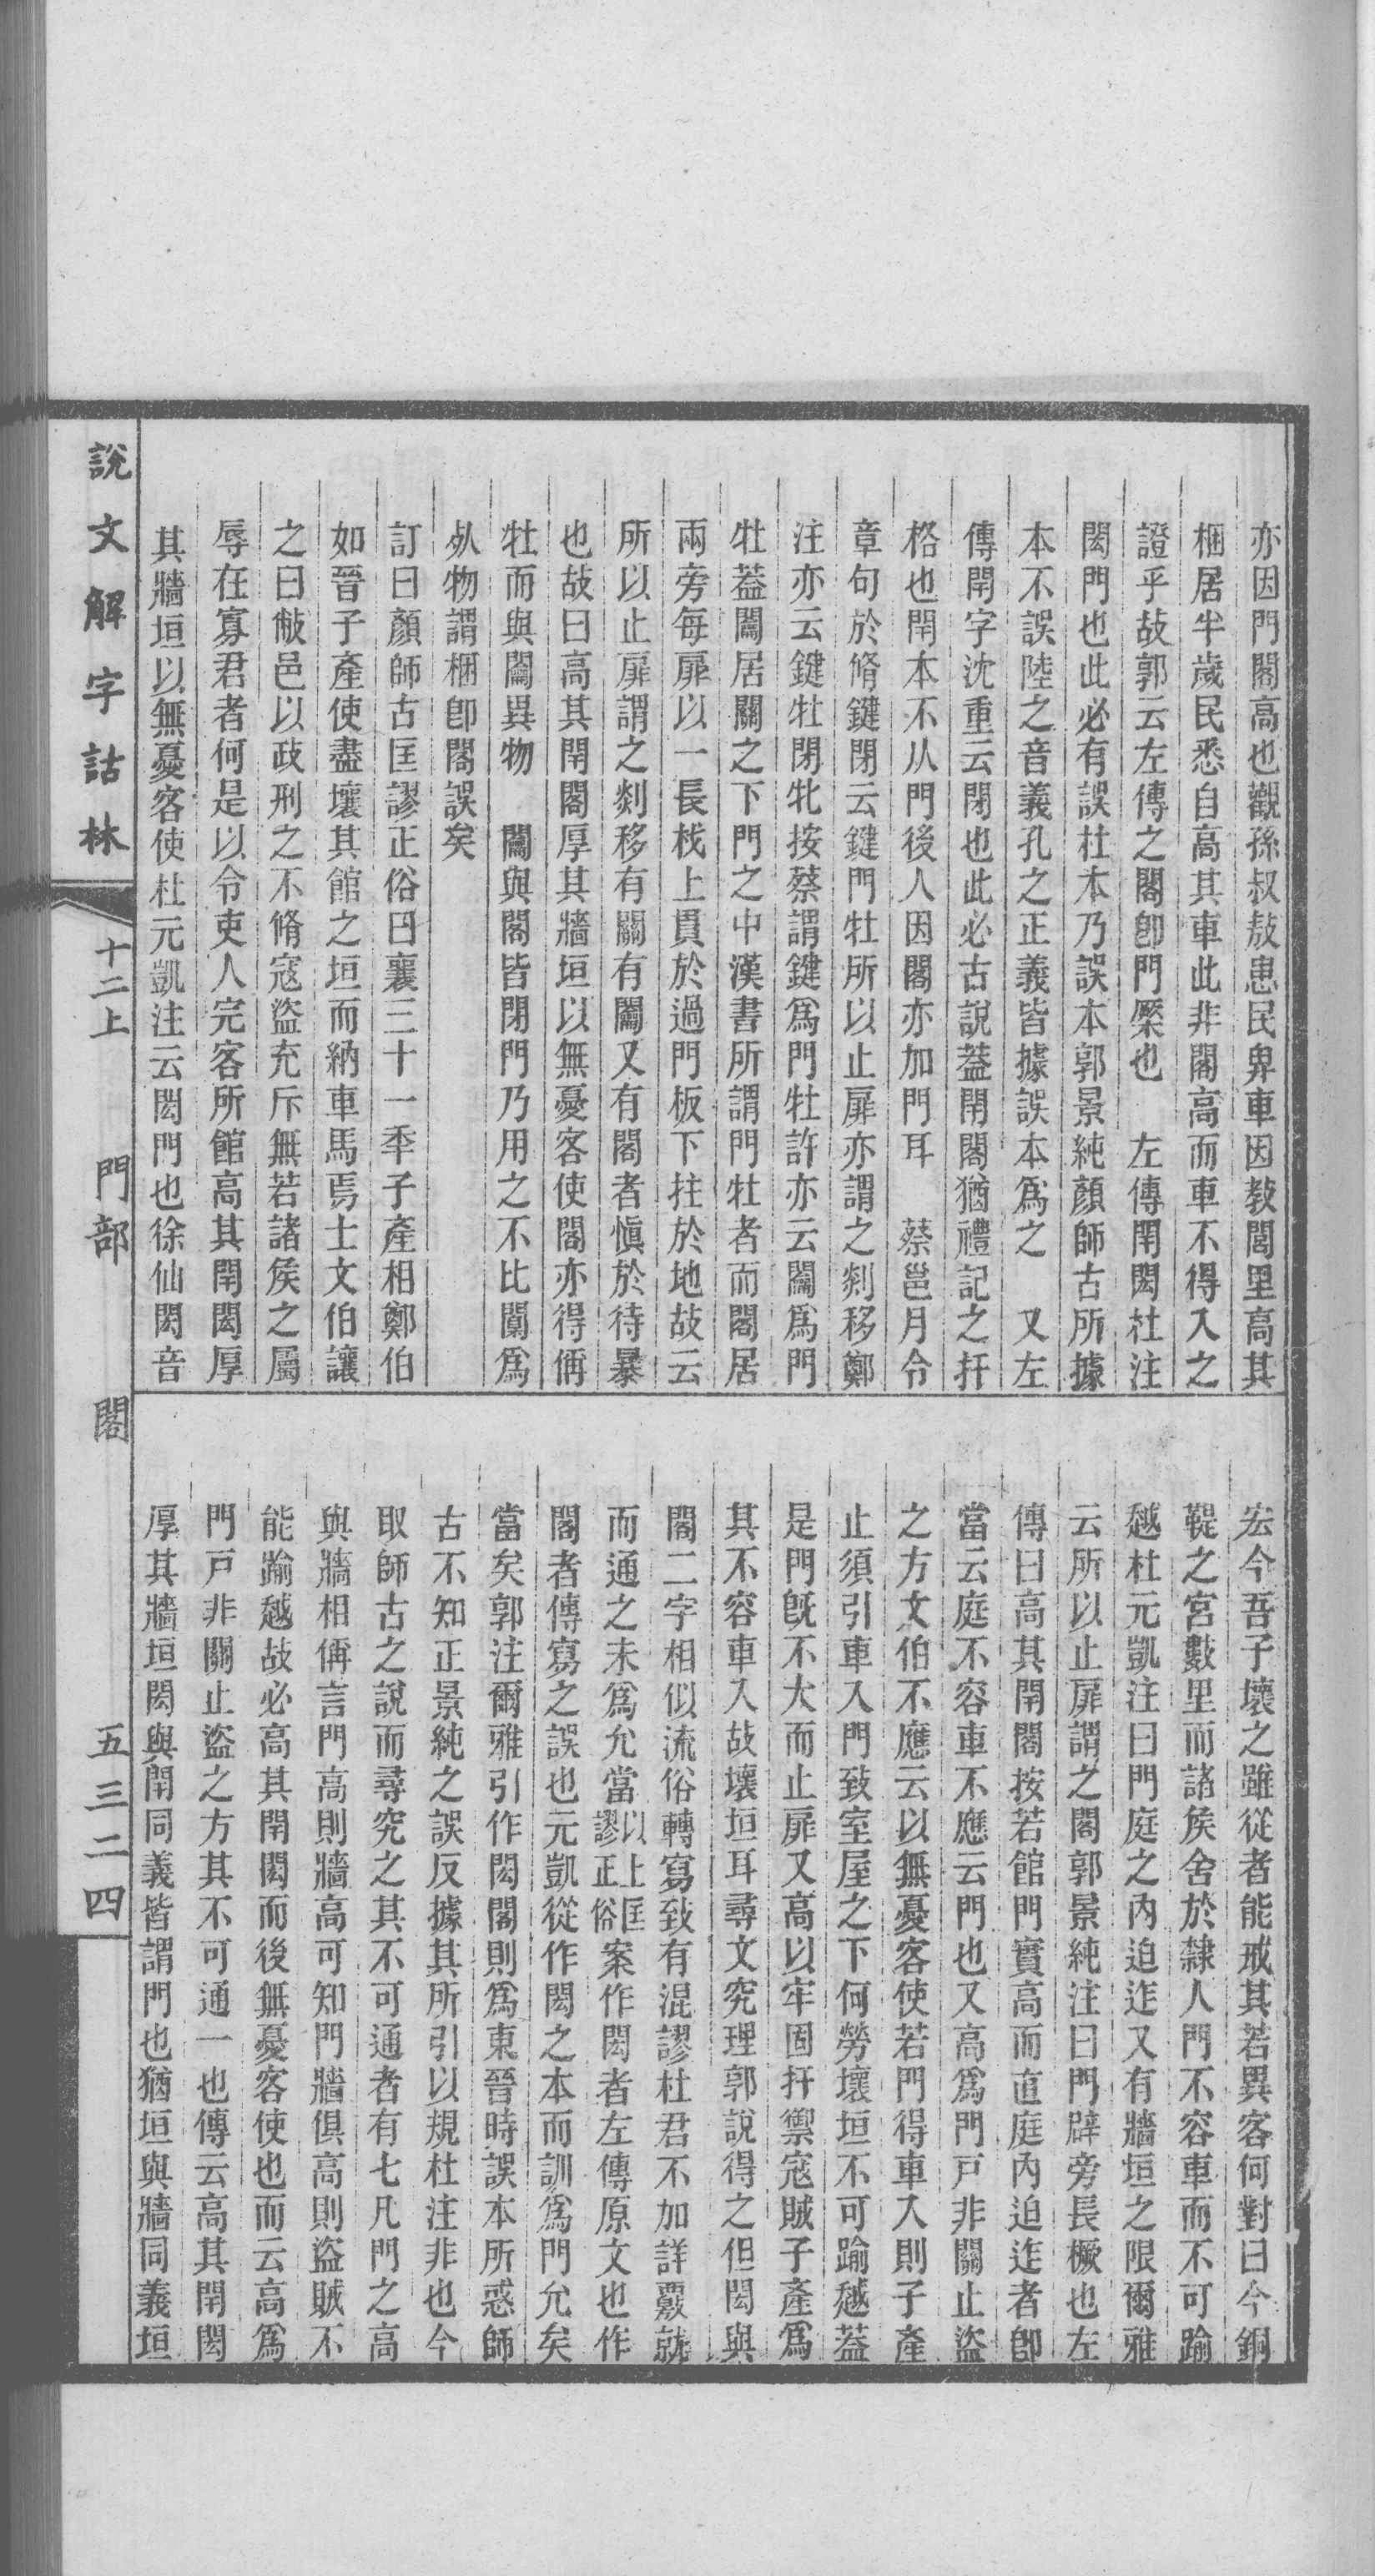 亦因門閣高也觀孫叔敖患民卑車因教閭里高其
梱居半歲民悉自高其車此非閣高而車不得入之
證乎故郭云左傳之閣卽門橜也　左傳閈閎杜注
閎門也此必有誤杜本乃誤本郭景純顏師古所據
本不誤陸之音義孔之正義皆據誤本爲之　又左
傳閈字沈重云閉也此必古說蓋閈閣猶禮記之扞
格也閈本不从門後人因閣亦加門耳　蔡邕月令
章句於脩鍵閉云鍵門牡所以止扉亦謂之剡移鄭
注亦云鍵牡閉牝按蔡謂鍵爲門牡許亦云闟爲門
牡蓋闟居關之下門之中漢書所謂門牡者而閣居
兩旁每扉以一長杙上貫於過門板下拄於地故云
所以止扉謂之剡移有關有闟又有閣者愼於待暴
也故曰高其閈閣厚其牆垣以無憂客使閣亦得偁
牡而與闟異物　闟與閣皆閉門乃用之不比闑爲
𣏟物謂梱卽閣誤矣
訂曰顏師古匡謬正俗曰襄三十一季子產相鄭伯
如晉子產使盡壞其館之垣而納車馬焉士文伯讓
之曰敝邑以政刑之不脩寇盜充斥無若諸矦之屬
辱在寡君者何是以令吏人完客所館高其閈閎厚
其牆垣以無憂客使杜元凱注云閎門也徐仙閎音
宏今吾子壞之雖從者能戒其若異客何對曰今銅
鞮之宮數里而諸矦舍於隸人門不容車而不可踰
越杜元凱注曰門庭之內迫迮又有牆垣之限爾雅
云所以止扉謂之閣郭景純注曰門辟旁長橛也左
傳曰高其閈閣按若館門實高而直庭內迫迮者卽
當云庭不容車不應云門也又高爲門戸非關止盜
之方文伯不應云以無憂客使若門得車入則子產
止須引車入門致室屋之下何勞壞垣不可踰越蓋
是門旣不大而止扉又高以牢固扞禦寇賊子產爲
其不容車入故壞垣耳尋文究理郭說得之但閎與
閣二字相似流俗轉寫致有混謬杜君不加詳覈就
而通之未爲允當以上匡謬正俗案作閎者左傳原文也作
閣者傳寫之誤也元凱從作閎之本而訓爲門允矣
當矣郭注爾雅引作閎閣則爲東晉時誤本所惑師
古不知正景純之誤反據其所引以規杜注非也今
取師古之說而尋究之其不可通者有七凡門之高
與牆相偁言門高則牆高可知門牆俱高則盜賊不
能踰越故必高其閈閎而後無憂客使也而云高爲
門戸非關止盜之方其不可通一也傳云高其閈閎
厚其牆垣閎與閈同義皆謂門也猶垣與牆同義垣
說文解字詁林
十二上　門部　閣　五三二四